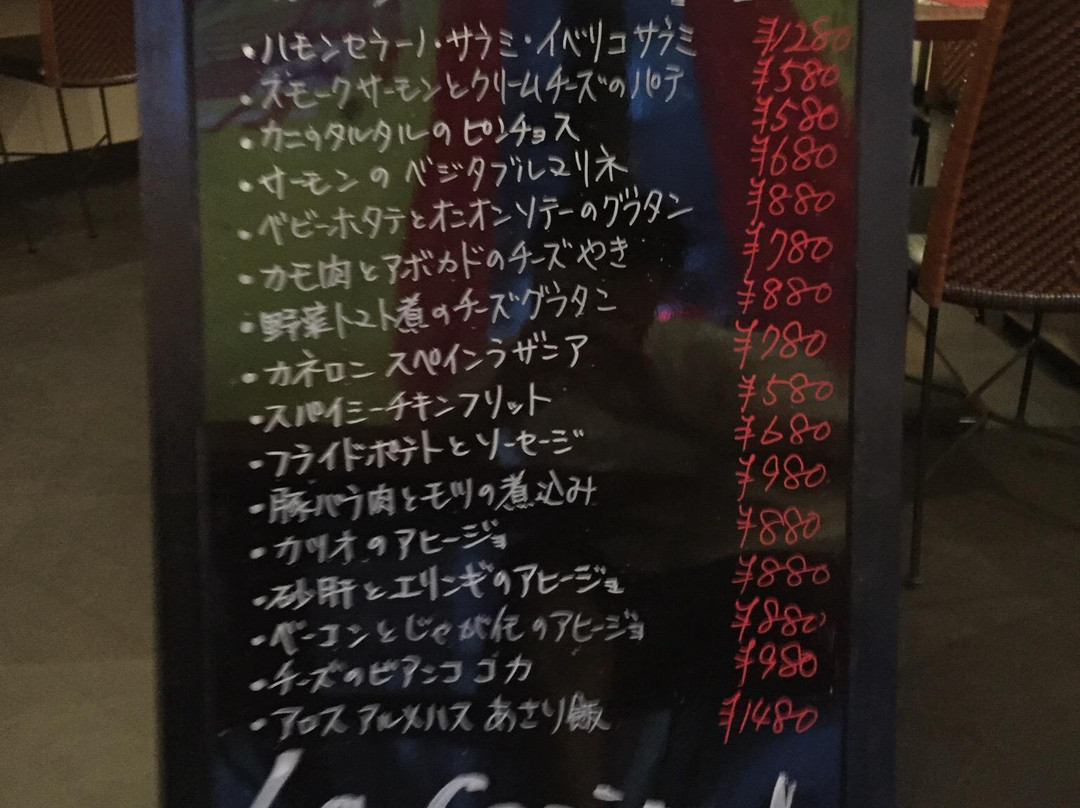 ・ハモンセラーノ・サラミ・イベリコサラミ ¥1280
・スモークサーモンとクリームチーズのパテ ¥580
・カニのタルタルのピンチョス ¥580
・サーモンのベジタブルマリネ ¥680
・ベビーホタテとオニオンソテーのグラタン ¥880
・カモ肉とアボカドのチーズやき ¥780
・野菜トマト煮のチーズグラタン ¥880
・カネロニ スペインラザニア ¥780
・スパイシーチキンフリット ¥580
・フライドポテトとソーセージ ¥680
・豚バラ肉とモツの煮込み ¥980
・カツオのアヒージョ ¥880
・砂肝とエリンギのアヒージョ ¥880
・ベーコンとじゃが芋のアヒージョ ¥880
・チーズのビアンコ コカ ¥980
・アロス アルメハス あさり飯 ¥1480
La